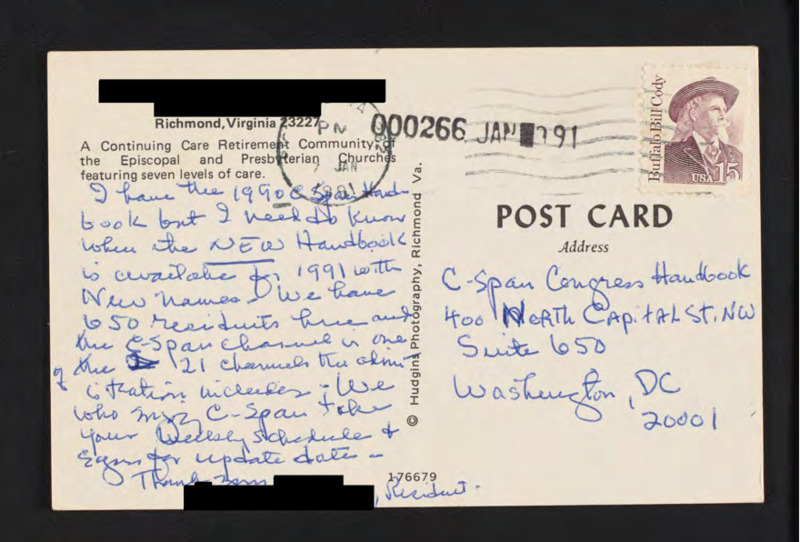 Richmond, Virginia 23227
A Continuing Care Retirement Community of
the Episcopal and Presbyterian Churches
featuring seven levels of care.
I have the 1990 C-Span Hand-
book but I need to know
when the NEW Handbook
is available for 1991 with
New names. We have
650 residents here and
the C-Span channel is one
of the 21 channels the admin-
istration includes - We
who enjoy C-Span take
your Weekly schedule &
for update dates -
Thank you
, Resident.
PM
7 JAN
1991
000266 JAN 91
Buffalo Bill Cody
USA 15
© Hudgins Photography, Richmond Va.
176679
POST CARD
Address
C-Span Congress Handbook
400 NORTH CAPITAL ST. NW
Suite 650
Washington, DC
20001